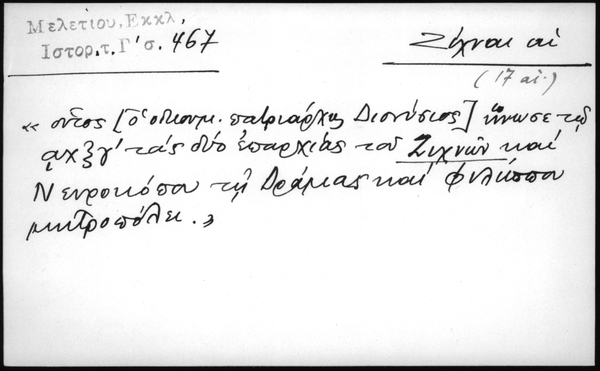 Μελετίου, Εκκλ,
Ιστορ,τ,Γ' σ. 467
Ζίχναι αἱ
(17 αἰ.)
« οὗτος [ὁ οἰκουμ. πατριάρχης Διονύσιος] ἥνωσε τῷ
αχξγ' τάς δύο ἐπαρχίας τοῦ Ζιχνῶν καί
Νευροκόπου τῇ Δράμας καί Φιλίππου
μητροπόλει. »